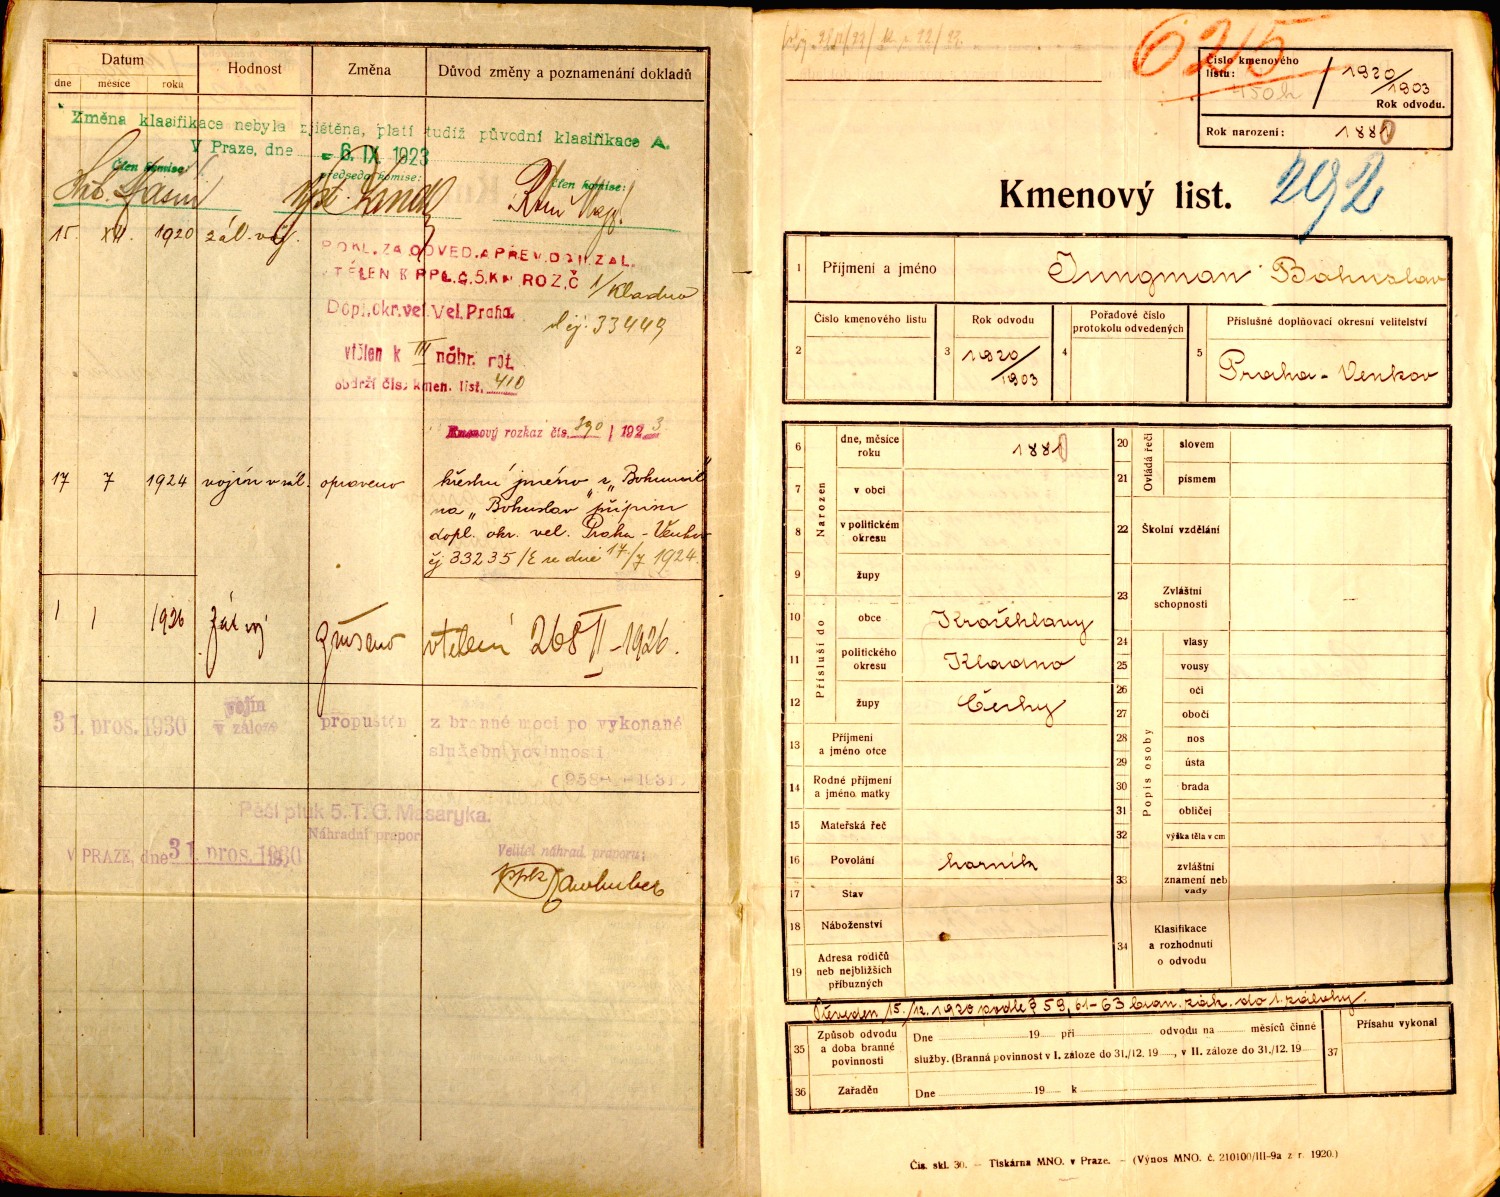 Datum
Hodnost
Změna
Důvod změny a poznamenání dokladů
dne měsíce roku
Změna klasifikace nebyla zjištěna, platí tudíž původní klasifikace A.
V Praze, dne - 6. IX. 1923
Člen komise:
předseda komise:
Člen komise:
15. XII. 1920 zál. voj.
POKL. ZA ODVED. A PŘEV. DO I. ZÁL.
VTĚLEN K P.PL. Č. 5. KN. ROZ. Č 1/Kladno
Dopl. okr. vel. Vel. Praha. čj: 33449
vtělen k III náhr. rot.
obdrží čís. kmen. list. 410
Kmenový rozkaz čís. 390 / 1923
17 7 1924 vojín v zál. opraveno křestní jméno z „Bohumil"
na „Bohuslav" přípisu
dopl. okr. vel. Praha - Venkov
čj 33235/E ze dne 17./7 1924.
1 1 1926 zál voj zrušeno vtělení 268 II - 1926.
31. pros. 1930 vojín v záloze propuštěn z branné moci po vykonané
služební povinnosti
Pěší pluk 5. T. G. Masaryka.
Náhradní prapor
V PRAZE, dne 31. pros. 1930
Velitel náhrad. praporu:
6215
Číslo kmenového listu: 450h
1920/1903
Rok odvodu.
Rok narození: 1880
Kmenový list. 292
1 Příjmení a jméno Jungman Bohuslav
2 Číslo kmenového listu
3 Rok odvodu 1920/1903
4 Pořadové číslo protokolu odvedených
5 Příslušné doplňovací okresní velitelství Praha - Venkov
Narozen
6 dne, měsíce roku 1880
7 v obci
8 v politickém okresu
9 župy
Přísluší do
10 obce Kročehlavy
11 politického okresu Kladno
12 župy Čechy
13 Příjmení a jméno otce
14 Rodné příjmení a jméno matky
15 Mateřská řeč
16 Povolání horník
17 Stav
18 Náboženství
19 Adresa rodičů neb nejbližších příbuzných
Ovládá řeči
20 slovem
21 písmem
22 Školní vzdělání
23 Zvláštní schopnosti
Popis osoby
24 vlasy
25 vousy
26 oči
27 obočí
28 nos
29 ústa
30 brada
31 obličej
32 výška těla v cm
33 zvláštní znamení neb vady
34 Klasifikace a rozhodnutí o odvodu
Převeden 15./12. 1920 podle § 59, 61-63 bran. zák. do 1. zálohy.
35 Způsob odvodu a doba branné povinnosti
Dne 19 při odvodu na měsíců činné
služby. (Branná povinnost v I. záloze do 31./12. 19 , v II. záloze do 31./12. 19
36 Zařaděn
Dne 19 k
37 Přísahu vykonal
Čís. skl. 30. — Tiskárna MNO. v Praze. — (Výnos MNO. č. 210100/III-9a z r. 1920.)